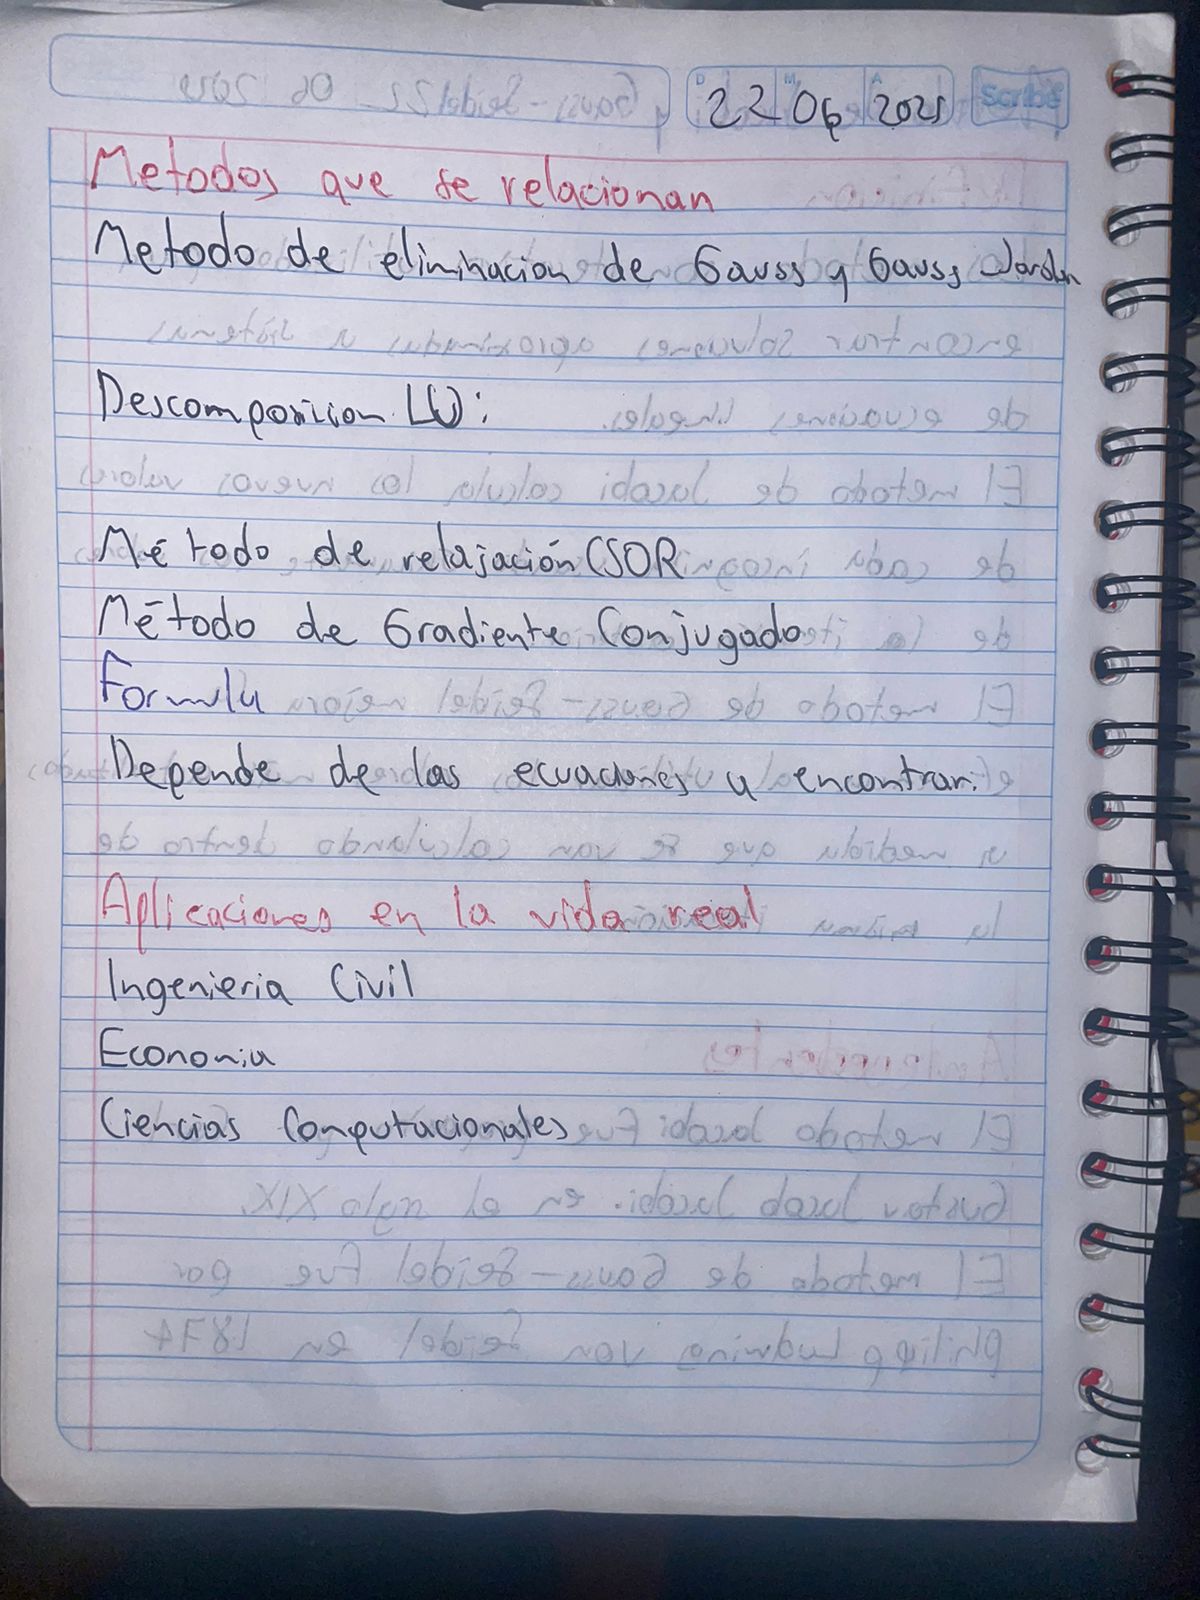 D M A
22 06 2025 Scribe
Metodos que se relacionan
Metodo de eliminacion de Gauss y Gauss Jordan
Descomposicion LU:
Método de relajación (SOR
Método de Gradiente Conjugado
Formula
Depende de las ecuaciones a encontrar.
Aplicaciones en la vida real
Ingenieria Civil
Economia
Ciencias Computacionales